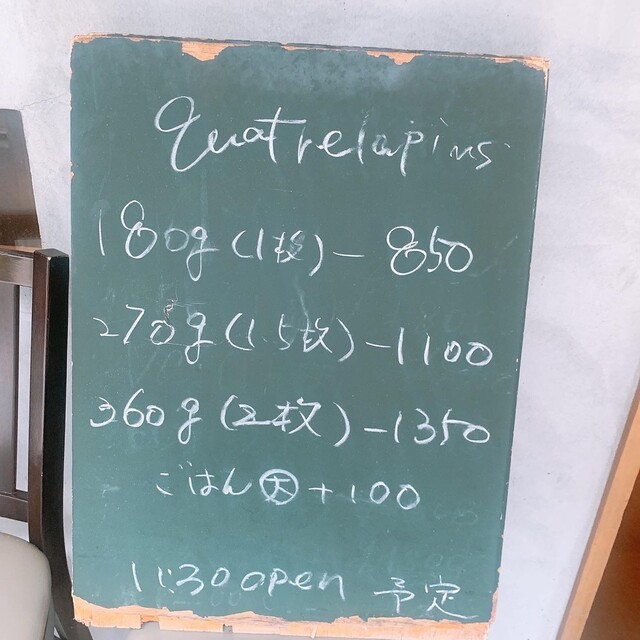 Quatrelapins
180g (1枚) - 850
270g (1.5枚) - 1100
360g (2枚) - 1350
ごはん 大 + 100
11:30 open 予定